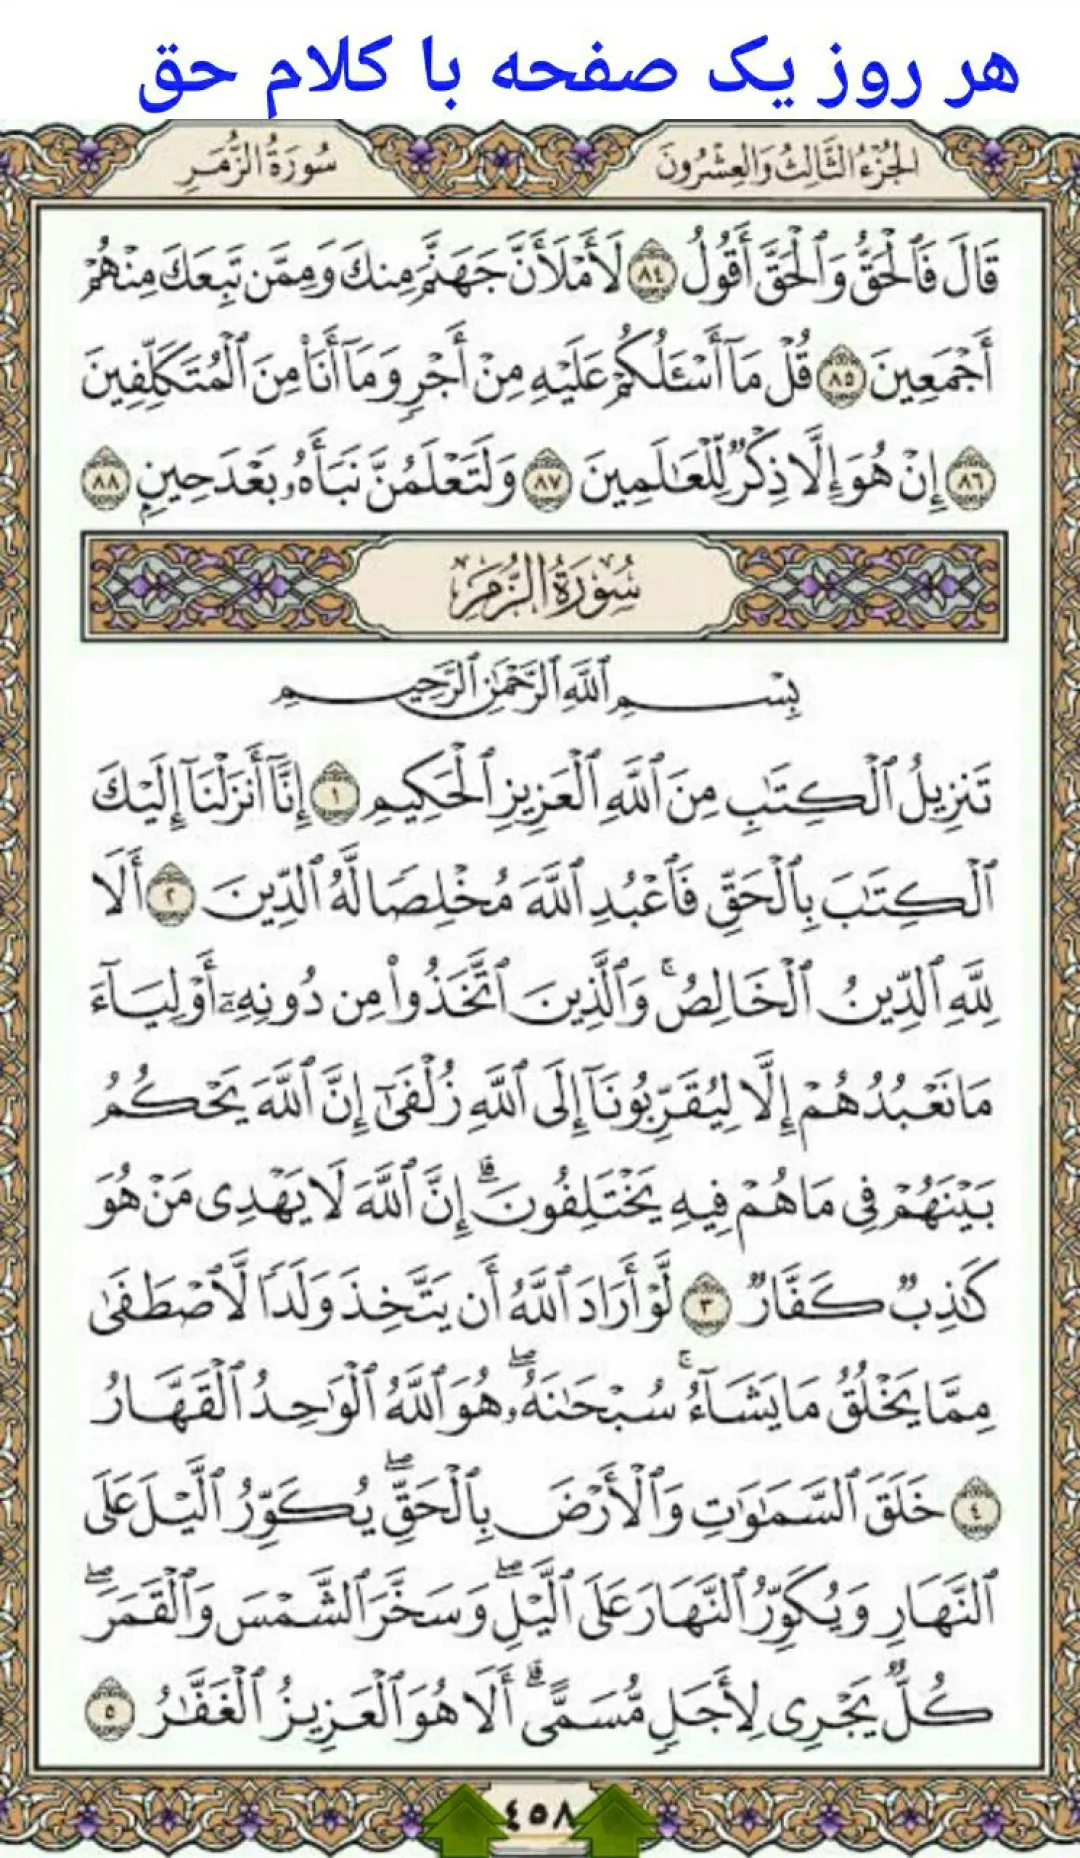 هر روز یک صفحه با کلام حق
الجُزْءُ الثَّالِثُ وَالعِشْرُونَ
سُورَةُ الزُّمَرِ
قَالَ فَٱلْحَقُّ وَٱلْحَقَّ أَقُولُ ٨٤ لَأَمْلَأَنَّ جَهَنَّمَ مِنكَ وَمِمَّن تَبِعَكَ مِنْهُمْ
أَجْمَعِينَ ٨٥ قُلْ مَآ أَسْـَٔلُكُمْ عَلَيْهِ مِنْ أَجْرٍ وَمَآ أَنَا۠ مِنَ ٱلْمُتَكَلِّفِينَ
٨٦ إِنْ هُوَ إِلَّا ذِكْرٌ لِّلْعَـٰلَمِينَ ٨٧ وَلَتَعْلَمُنَّ نَبَأَهُۥ بَعْدَ حِينٍۭ ٨٨
سُورَةُ الزُّمَرِ
بِسْمِ ٱللَّهِ ٱلرَّحْمَـٰنِ ٱلرَّحِيمِ
تَنزِيلُ ٱلْكِتَـٰبِ مِنَ ٱللَّهِ ٱلْعَزِيزِ ٱلْحَكِيمِ ١ إِنَّآ أَنزَلْنَآ إِلَيْكَ
ٱلْكِتَـٰبَ بِٱلْحَقِّ فَٱعْبُدِ ٱللَّهَ مُخْلِصًا لَّهُ ٱلدِّينَ ٢ أَلَا
لِلَّهِ ٱلدِّينُ ٱلْخَالِصُ ۚ وَٱلَّذِينَ ٱتَّخَذُوا۟ مِن دُونِهِۦٓ أَوْلِيَآءَ
مَا نَعْبُدُهُمْ إِلَّا لِيُقَرِّبُونَآ إِلَى ٱللَّهِ زُلْفَىٰٓ إِنَّ ٱللَّهَ يَحْكُمُ
بَيْنَهُمْ فِى مَا هُمْ فِيهِ يَخْتَلِفُونَ ۗ إِنَّ ٱللَّهَ لَا يَهْدِى مَنْ هُوَ
كَـٰذِبٌ كَفَّارٌ ٣ لَّوْ أَرَادَ ٱللَّهُ أَن يَتَّخِذَ وَلَدًا لَّٱصْطَفَىٰ
مِمَّا يَخْلُقُ مَا يَشَآءُ ۚ سُبْحَـٰنَهُۥ ۖ هُوَ ٱللَّهُ ٱلْوَٰحِدُ ٱلْقَهَّارُ
٤ خَلَقَ ٱلسَّمَـٰوَٰتِ وَٱلْأَرْضَ بِٱلْحَقِّ ۖ يُكَوِّرُ ٱلَّيْلَ عَلَى
ٱلنَّهَارِ وَيُكَوِّرُ ٱلنَّهَارَ عَلَى ٱلَّيْلِ ۖ وَسَخَّرَ ٱلشَّمْسَ وَٱلْقَمَرَ ۖ
كُلٌّ يَجْرِى لِأَجَلٍ مُّسَمًّى ۗ أَلَا هُوَ ٱلْعَزِيزُ ٱلْغَفَّـٰرُ ٥
٤٥٨